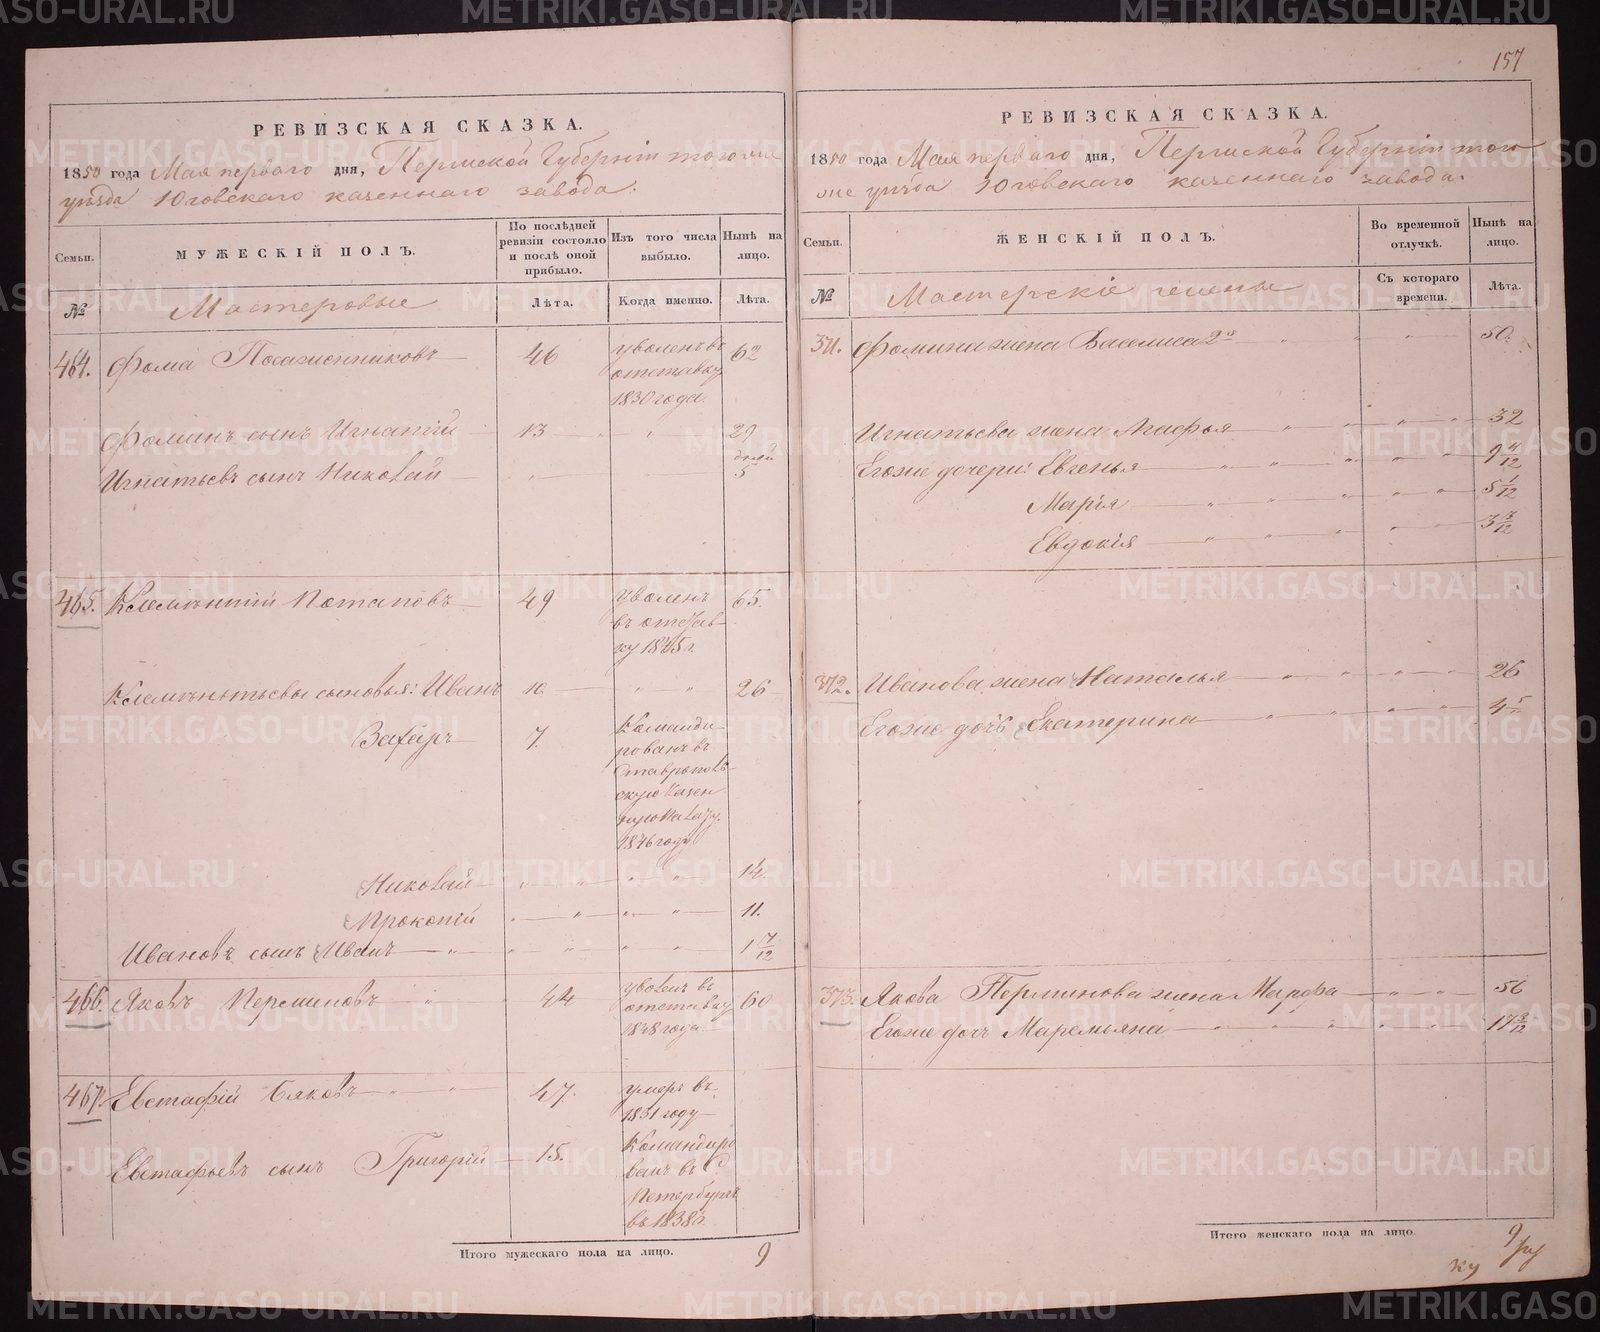 157
РЕВИЗСКАЯ СКАЗКА.
1850 года Мая перваго дня, Пермской Губерніи того же
уѣзда Юговскаго казеннаго завода.
Семьи.
МУЖЕСКІЙ ПОЛЪ.
По послѣдней ревизіи состояло и послѣ оной прибыло.
Изъ того числа выбыло.
Нынѣ на лицо.
№
Мастеровые
Лѣта.
Когда именно.
Лѣта.
464. Фома Посаженниковъ 46 уволенъ въ отставку 1830 года. 62
Фоминъ сынъ Игнатій 13 " " 29
Игнатьевъ сынъ Николай " дней 5
465. Клементій Потаповъ 49 уволенъ въ отставку 1845 г. 65.
Клементьевы сыновья: Иванъ 10. " " 26
Захаръ 7. Командированъ въ Ставропольскую Казенную Палату. 1846 году
Николай " " " " 14.
Прокопій " " " " 11.
Ивановъ сынъ Иванъ " " " " " 1 7/12
466. Яковъ Перминовъ " 44 уволенъ въ отставку 1848 года. 60
467. Евстафій Бяковъ " " 47. умеръ въ 1831 году
Евстафьевъ сынъ Григорій 15. Командированъ въ С. Петербургъ въ 1838 г.
Итого мужескаго пола на лицо. 9
РЕВИЗСКАЯ СКАЗКА.
1850 года Мая перваго дня, Пермской Губерніи того
же уѣзда Юговскаго казеннаго завода.
Семьи.
ЖЕНСКІЙ ПОЛЪ.
Во временной отлучкѣ.
Нынѣ на лицо.
№
Мастерскіе жены
Съ котораго времени.
Лѣта.
371. Фомина жена Васлиса 2я " " " " 50.
Игнатьева жена Агафья " " " " 32
Егоже дочери: Евгенья " " " " " 9 4/12
Марія " " " " " 5 1/12
Евдокія " " " " 3 3/12
372. Иванова жена Наталья " " " " " 26
Егоже дочь Екатерина " " " " 4 5/
373. Якова Перминова жена Марфа " " 56
Егоже дочь Маремьяна " " " " " 17 3/12
Итого женскаго пола на лицо. 9